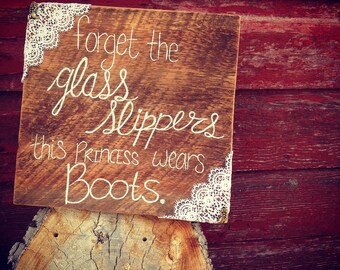 forget the
glass
slippers
this Princess wears
Boots.